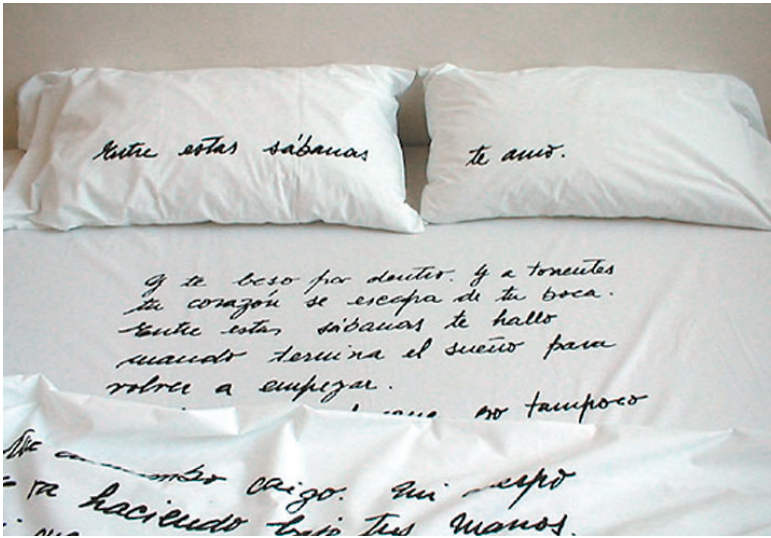 Entre estas sábanas
te amo.
y te beso por dentro. y a torrentes
tu corazón se escapa de tu boca.
Entre estas sábanas te hallo
cuando termina el sueño para
volver a empezar.
no tampoco
caigo. mi
va haciendo bajo tus manos.